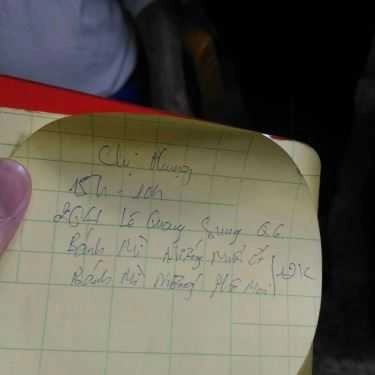 Chị Nhung
15h - 10h
264 Lê Quang Sung Q.6
Bánh Mì Nướng Muối Ớt
Bánh Mì Nướng Phô Mai 12K